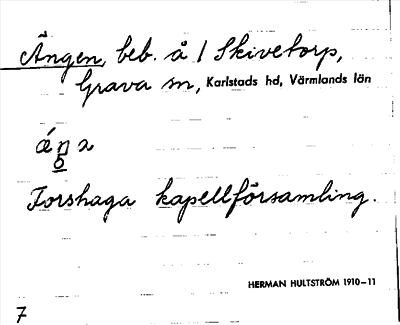 Ängen, beb. å 1 Skivetorp,
Grava sn, Karlstads hd, Värmlands län
Forshaga kapellförsamling.
HERMAN HULTSTRÖM 1910-11
7